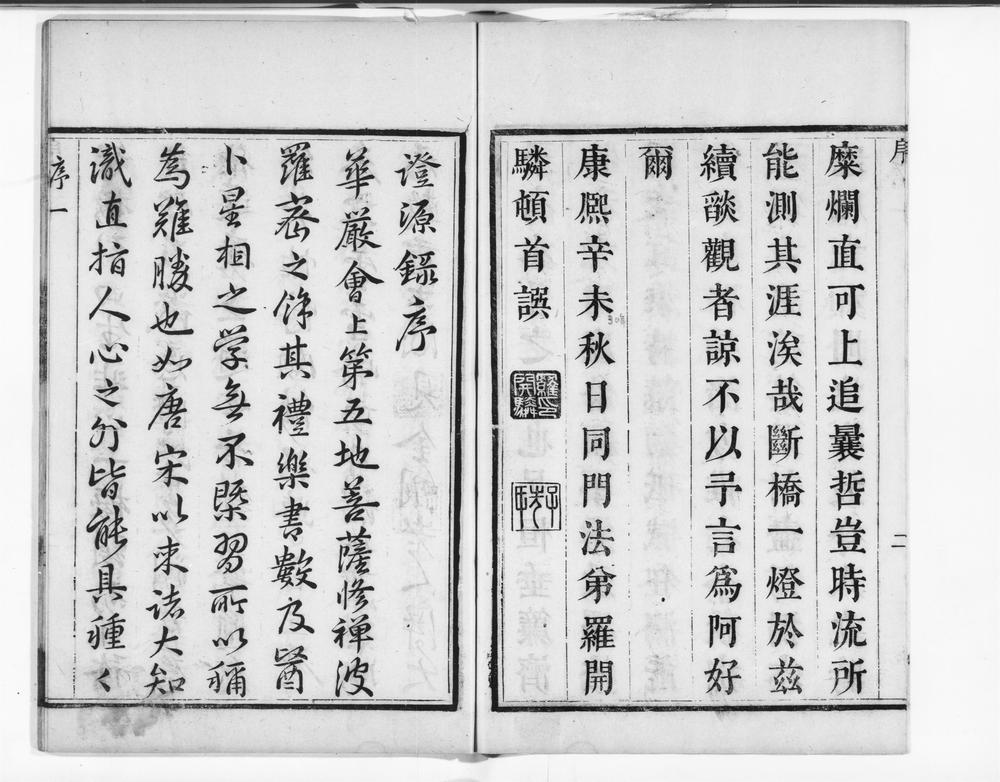 序
糜爛直可上追曩哲豈時流所
能測其涯涘哉斷橋一燈於茲
續燄觀者諒不以予言爲阿好
爾
康熈辛未秋日同門法弟羅開
驎頓首譔
羅印開驎
二
證源錄序
華嚴會上第五地菩薩修禅波
羅蜜之餘其禮樂書數及醫
卜星相之学無不槩習所以稱
為難勝也如唐宋以来諸大知
識直指人心之外皆能具種々
序一